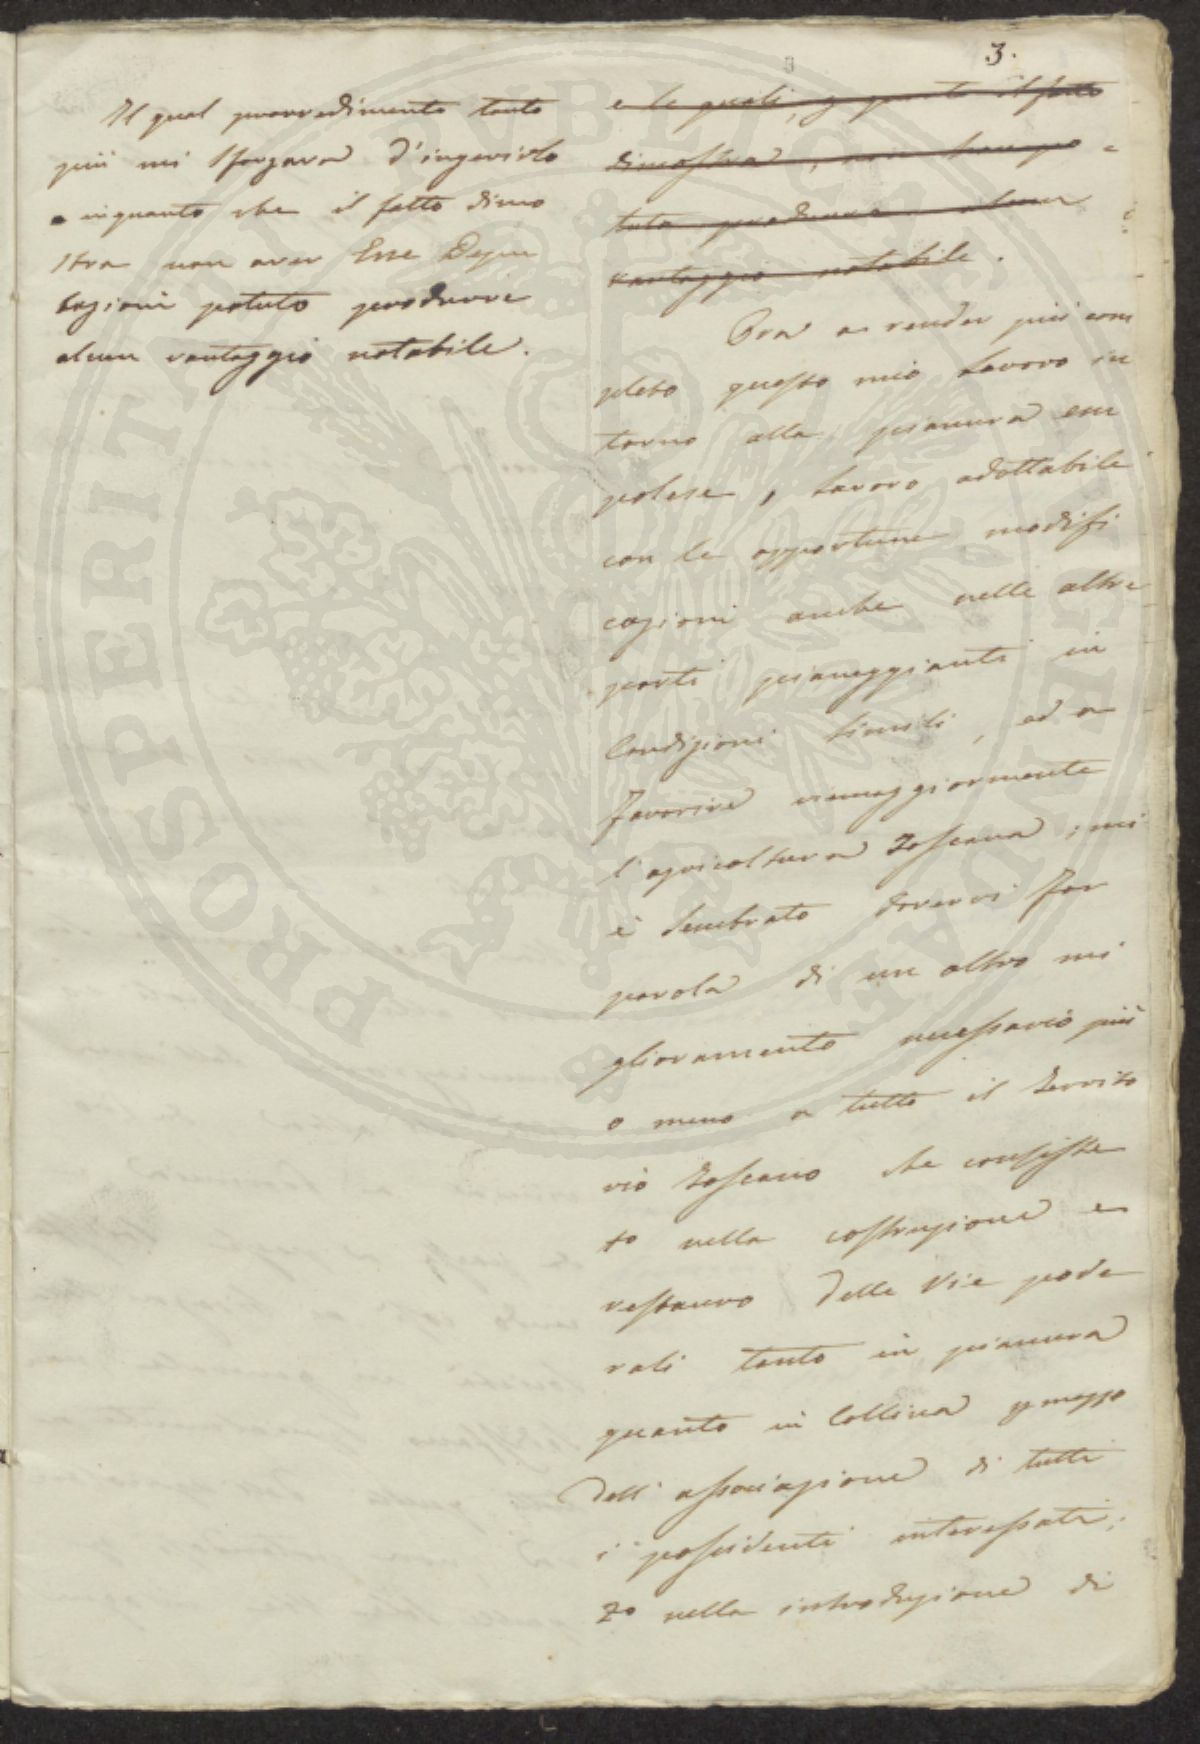 3.
Il qual provvedimento tanto
più mi sforzava d'ingerirlo
inquanto che il fatto dimo
stra non aver Esse Depu
tazioni potuto produrre
alcun vantaggio notabile.
e le quali, p quanto il fatto
dimostra, non han po=
tuto produrre alcun
vantaggio notabile.
Ora a render più com
pleto questo mio lavoro in
torno alla pianura em
polese, lavoro adottabile
con le opportune modifi
cazioni anche nelle altre
parti pianeggianti in
Condizioni simili, ed a
favorire viemaggiormente
l'agricoltura Toscana, mi
è sembrato dovervi far
parola di un altro mi
glioramento necessario più
o meno a tutto il territo
rio toscano che consiste
1º nella costruzione e
restauro delle Vie pode
rali tanto in pianura
quanto in Collina p mezzo
dell'associazione di tutti
i possidenti interessati;
2º nella introduzione di
PROSPERITATI PUBLICAE AUGENDAE